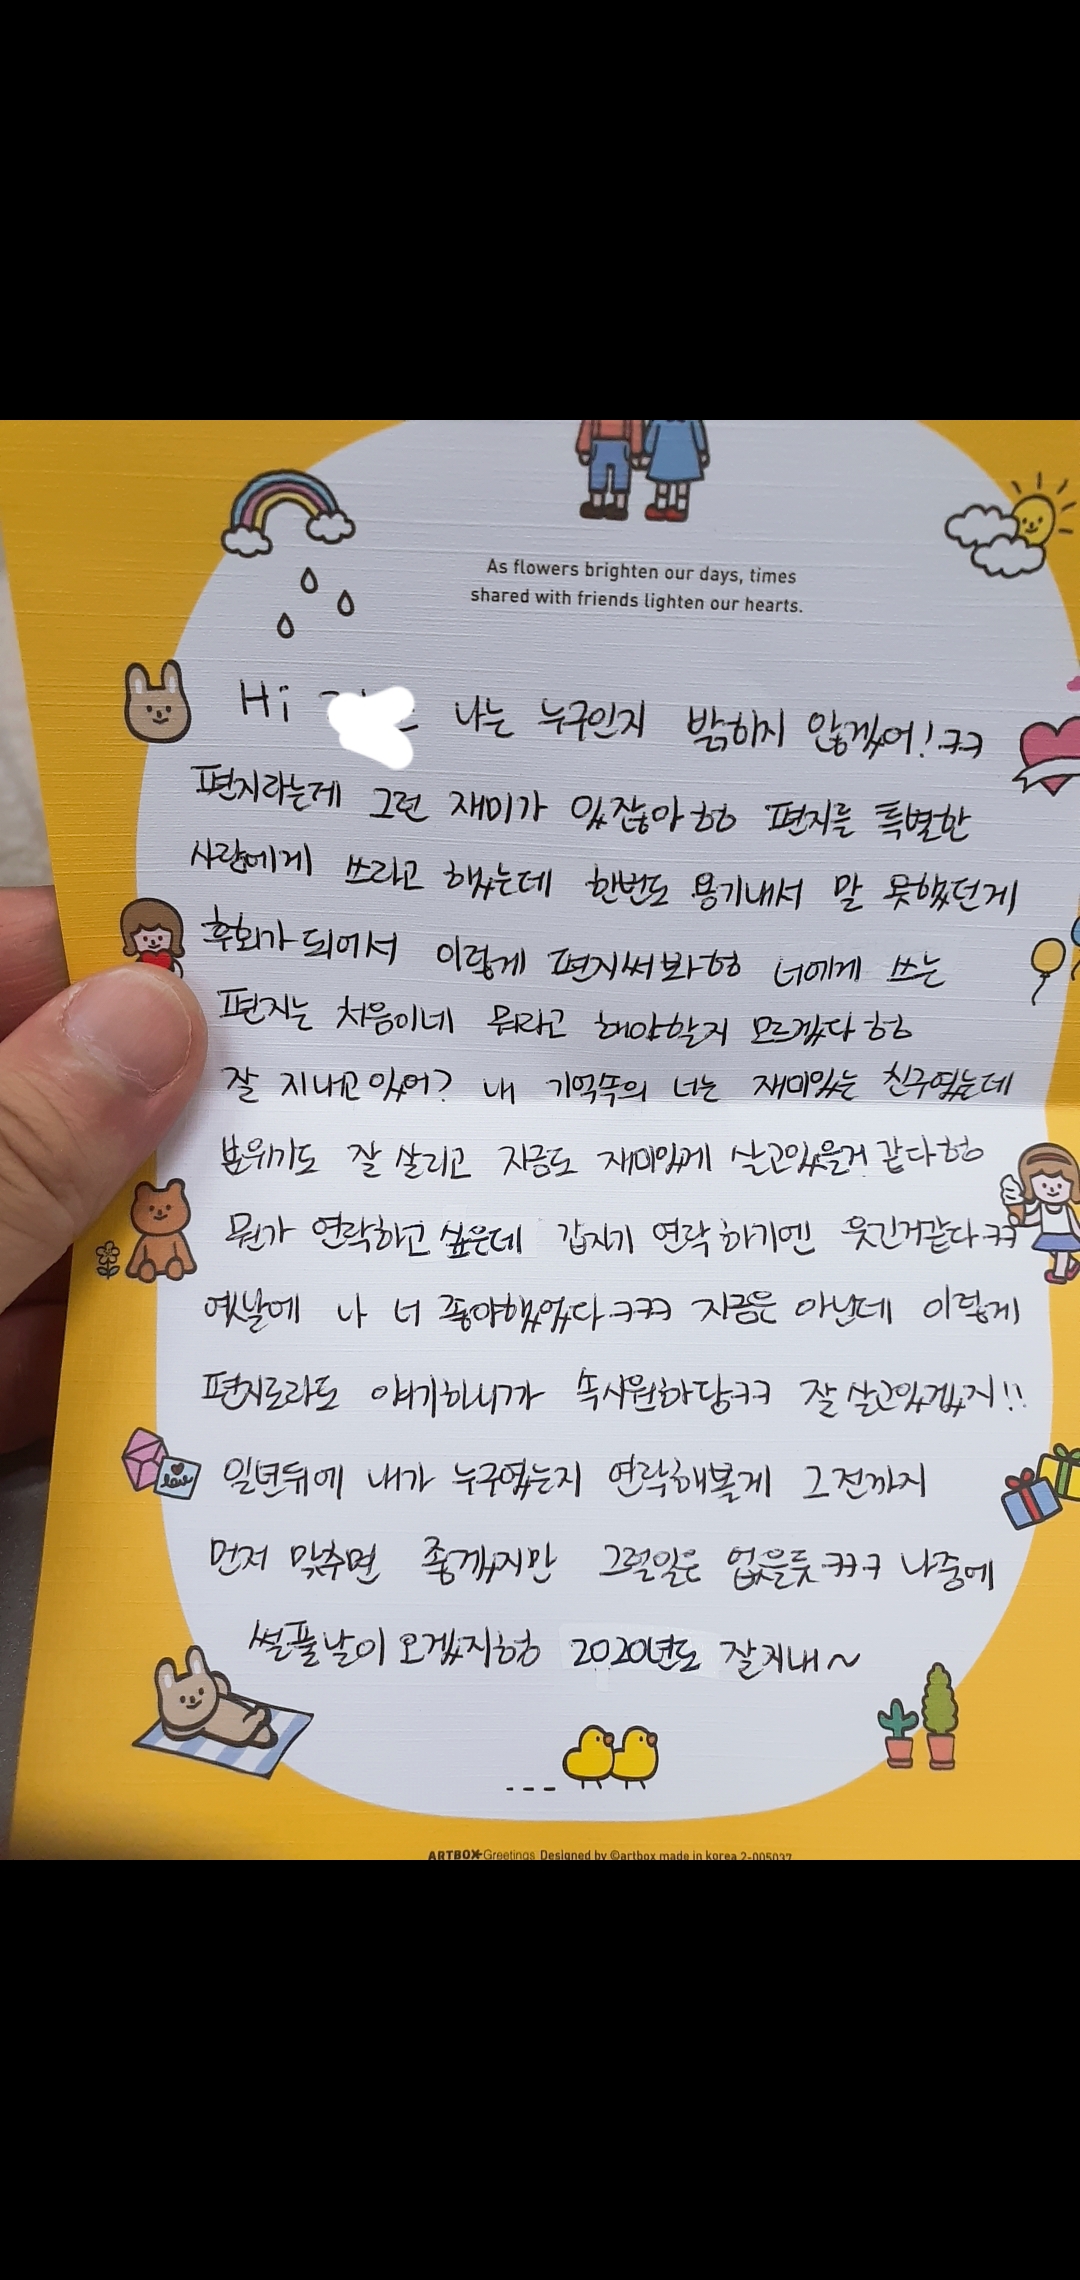 As flowers brighten our days, times
shared with friends lighten our hearts.
Hi 나는 누구인지 밝히지 않겠어! ㅋㅋ
편지라는게 그런 재미가 있잖아 헝 편지를 특별한
사람에게 쓰라고 했는데 한번도 용기내서 말 못했던게
후회가 되어서 이렇게 편지써봐헝 너에게 쓰는
편지는 처음이네 뭐라고 해야할지 모르겠다 헝
잘 지내고있어? 내 기억쏙의 너는 재미있는 친구였는데
분위기도 잘 살리고 지금도 재미있게 살고있을거 같다헝
뭔가 연락하고 싶은데 갑자기 연락하기엔 웃긴거같다ㅋㅋ
옛날에 나 너 좋아했었다ㅋㅋㅋ 지금은 아닌데 이렇게
편지로라도 얘기하니까 속시원하당ㅋㅋ 잘살고있겠지!!
일년뒤에 내가 누구였는지 연락해볼게 그전까지
먼저 맞추면 좋겠지만 그럴일은 없을듯ㅋㅋㅋ 나중에
썰풀날이 오겠지헝 2020년도 잘지내~
love
ARTBOX Greetings Designed by ©artbox made in korea 2-005037